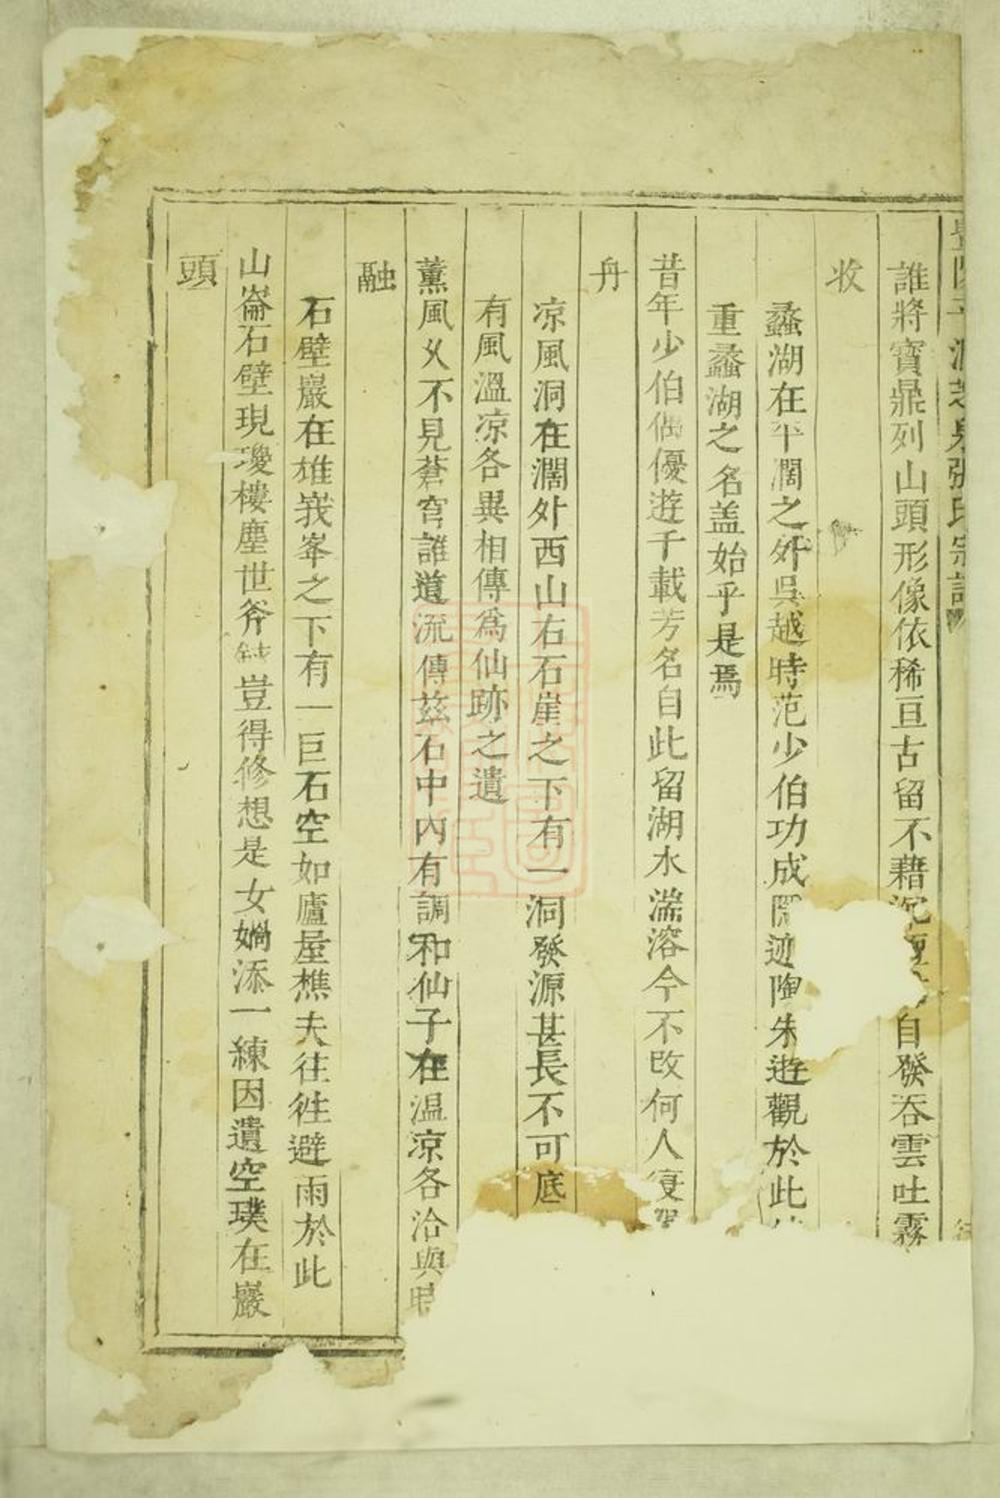 張氏宗譜
誰將寶鼎列山頭形像依稀亘古留不藉沉自發吞雲吐霧
收
蠡湖在平濶之外吳越時范少伯功成迹陶朱遊觀於此
重蠡湖之名盖始乎是焉
昔年少伯偶優遊千載芳名自此留湖水溶今不改何人復
舟
凉風洞在濶外西山右石崖之下有一洞發源甚長不可底
有風溫凉各異相傳為仙跡之遺
薰風乆不見蒼穹誰道流傳玆石中內有調和仙子在溫凉各洽與時
融
石壁巖在堆峩峯之下有一巨石空如廬屋樵夫往徃避雨於此
山崙石壁現瓊樓塵世斧豈得修想是女媧添一練因遺空璞在巖
頭